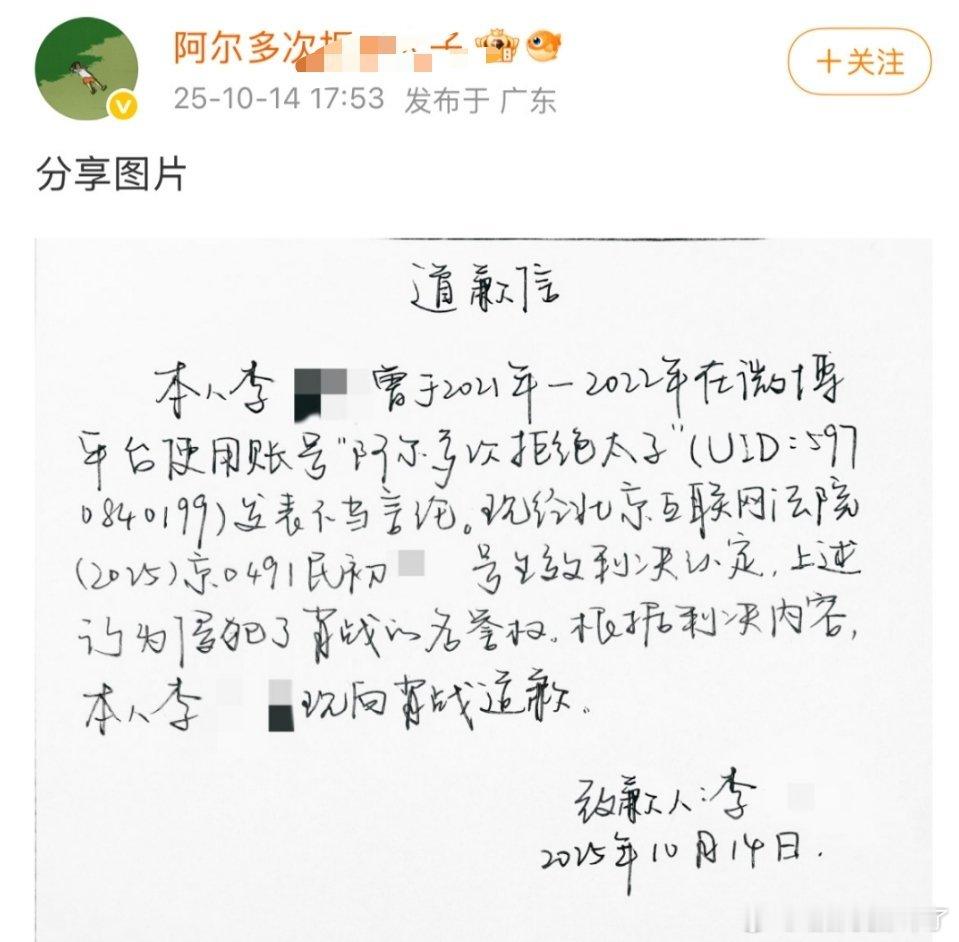 阿尔多次拒
25-10-14 17:53 发布于 广东
+关注
分享图片
道歉信
本人李 曾于2021年-2022年在微博
平台使用账号“阿尔多次拒绝太子”(UID:597
0840199)发表不当言论。现经北京互联网法院
(2025)京0491民初 号生效判决认定,上述
行为侵犯了肖战的名誉权。根据判决内容,
本人李 现向肖战道歉。
致歉人:李
2025年10月14日.